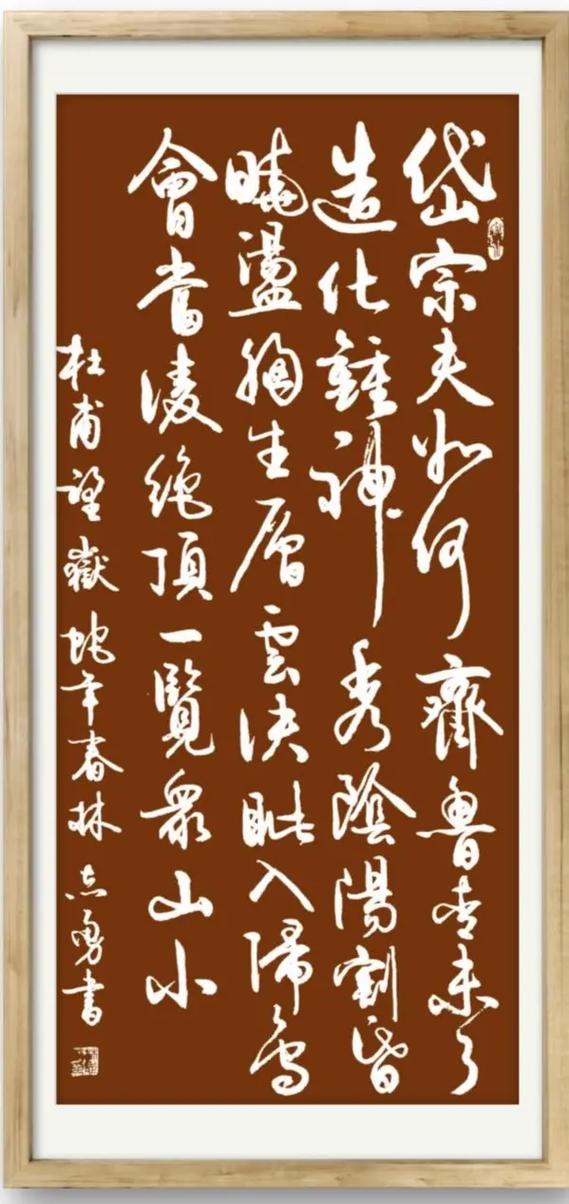 岱宗夫如何齊魯青未了
造化鍾神秀陰陽割昏
曉盪胸生層雲決眦入歸鳥
會當凌絕頂一覽衆山小
杜甫望嶽蛇年春林志勇書